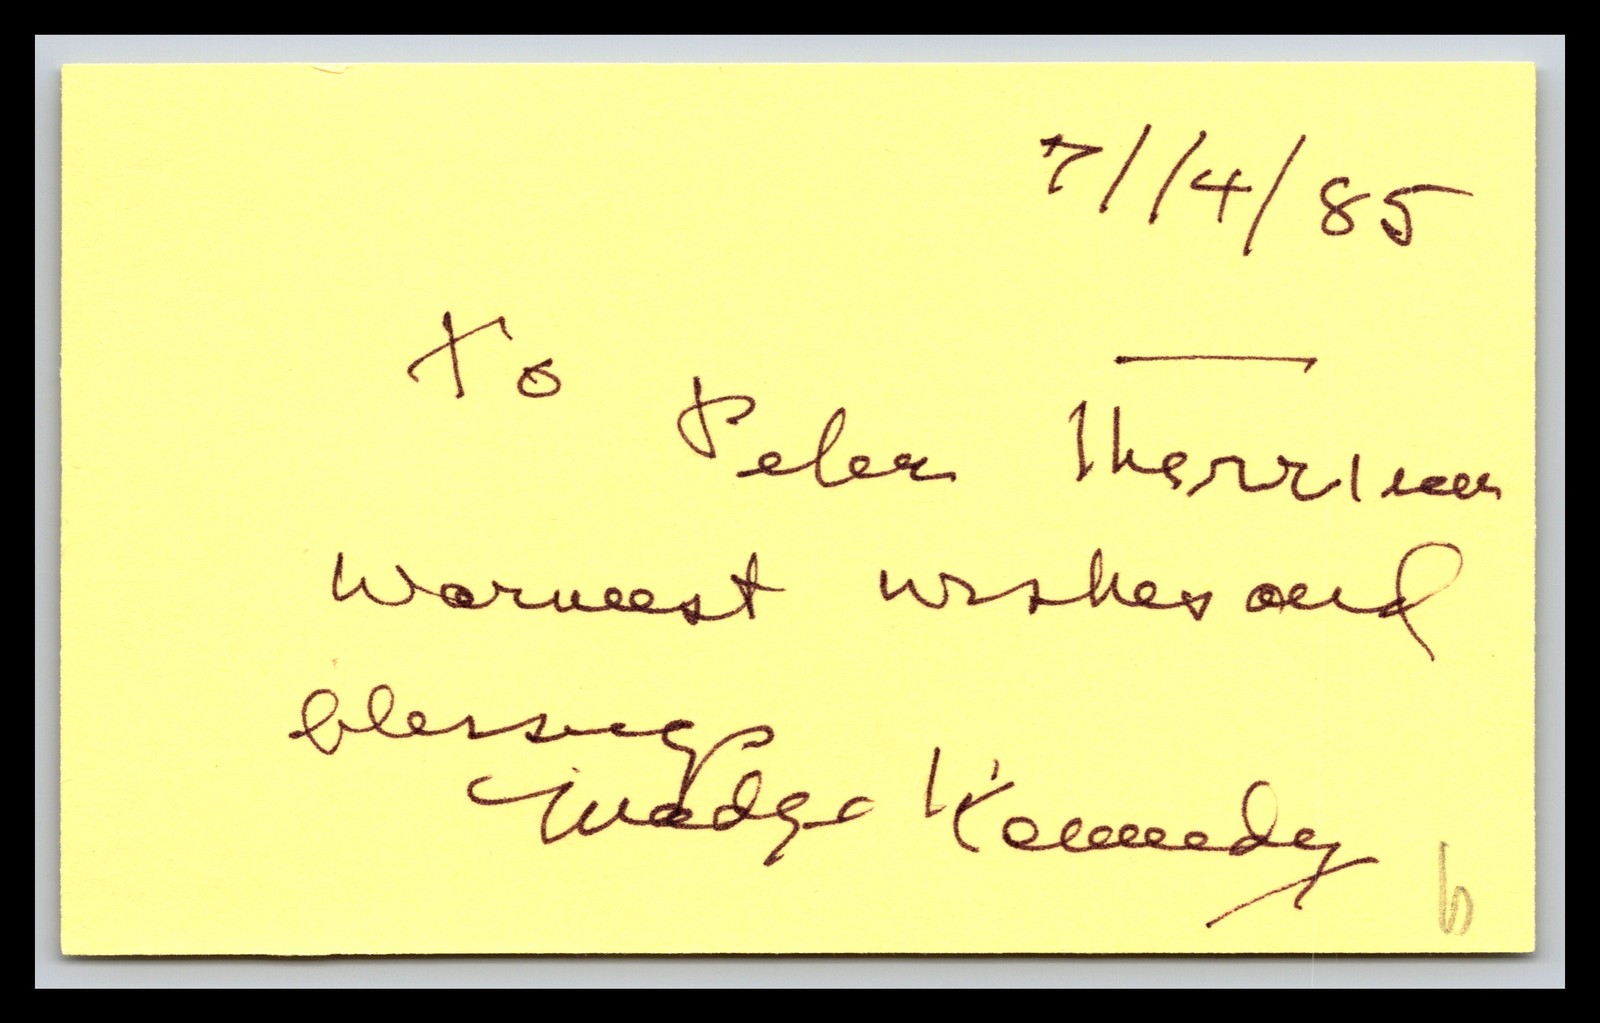 7/14/85
To Peter Therrien
Warmest wishes and
blessings
Madge Kennedy
b